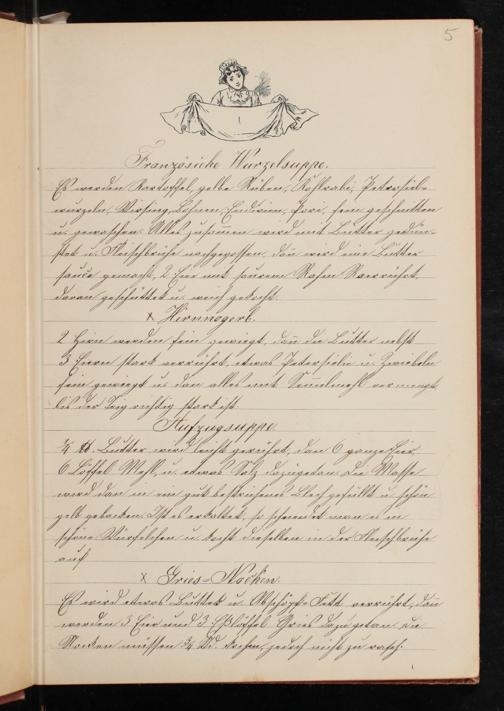 5
1
Französische Wurzelsuppe.
Es werden Kartoffel, gelbe Rüben, Kohlrabi, Petersilie-
wurzeln, Wirsing, Bohnen, Endivien, fein geschnitten
u. gewaschen. Alles zusammen wird mit Butter gedün-
stet u. Fleischbrühe nachgegossen, dan wird eine Butter
sauce gemacht, 2 Eier mit saurem Rahm verrührt,
daran geschüttet u. weich gekocht.
x Hirnnogerl.
2 Hirn werden fein gewiegt, dan die Butter nebst
3 Eiern stark verrührt, etwas Petersilie u. Zwiebeln
fein gewiegt u. dan alles mit Semmelmehl vermengt
bis der Teig richtig stark ist.
Aufzugsuppe
¼ Butter wird leicht gerührt, dan 6 ganze Eier
6 Löffel Mehl, u. etwas Salz dazugetan. Die Masse
wird dan in ein gut bestrichenes Blech gefüllt u. schön
gelb gebacken. Ist es erkaltet, so schneidet man es in
schöne Würfelchen u. kocht dieselben in der Fleischbrühe
auf.
x Gries-Nocken.
Es wird etwas Butter u. Abschöpf-Fett verrührt, dan
werden 3 Eier und 3 Eßlöffel Gries dazugetan. Die
Nocken müssen ¾ Std. kochen, jedoch nicht zu rasch.